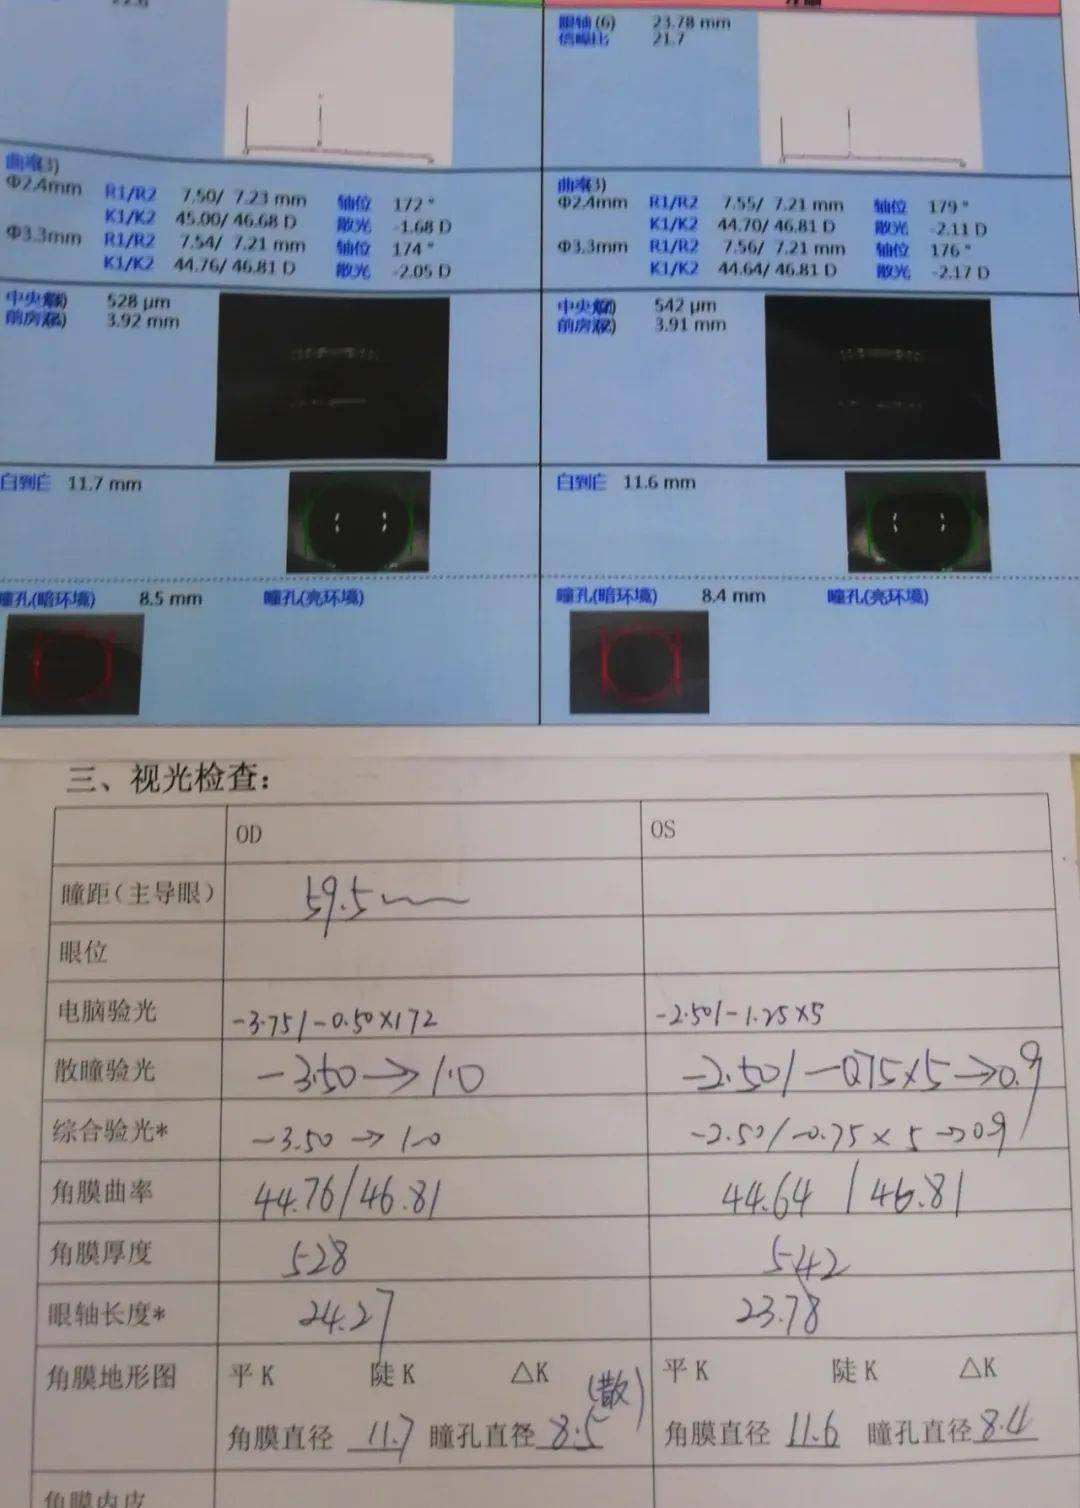 22.6
左眼
眼轴 (6) 23.78 mm
信噪比 21.7
曲率(3)
Φ2.4mm R1/R2 7.50/ 7.23 mm 轴位 172 °
K1/K2 45.00/ 46.68 D 散光 -1.68 D
Φ3.3mm R1/R2 7.54/ 7.21 mm 轴位 174 °
K1/K2 44.76/ 46.81 D 散光 -2.05 D
曲率(3)
Φ2.4mm R1/R2 7.55/ 7.21 mm 轴位 179 °
K1/K2 44.70/ 46.81 D 散光 -2.11 D
Φ3.3mm R1/R2 7.56/ 7.21 mm 轴位 176 °
K1/K2 44.64/ 46.81 D 散光 -2.17 D
中央 528 µm
前房 3.92 mm
中央 542 µm
前房 3.91 mm
白到白 11.7 mm
白到白 11.6 mm
瞳孔(暗环境) 8.5 mm 瞳孔(亮环境)
瞳孔(暗环境) 8.4 mm 瞳孔(亮环境)
三、视光检查:
OD OS
瞳距(主导眼) 59.5
眼位
电脑验光 -3.75/-0.50×172 -2.50/-1.25×5
散瞳验光 -3.50→1.0 -2.50/-0.75×5→0.9
综合验光* -3.50→1.0 -2.50/-0.75×5→0.9
角膜曲率 44.76/46.81 44.64/46.81
角膜厚度 528 542
眼轴长度* 24.27 23.78
角膜地形图 平K 陡K △K (散) 平K 陡K △K
角膜直径 11.7 瞳孔直径 8.5 角膜直径 11.6 瞳孔直径 8.4
角膜内皮